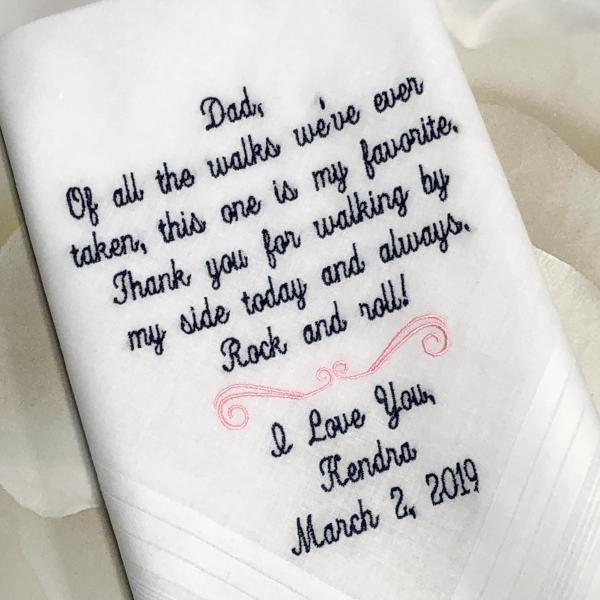 Dad,
Of all the walks we've ever
taken, this one is my favorite.
Thank you for walking by
my side today and always.
Rock and roll!
I Love You,
Kendra
March 2, 2019